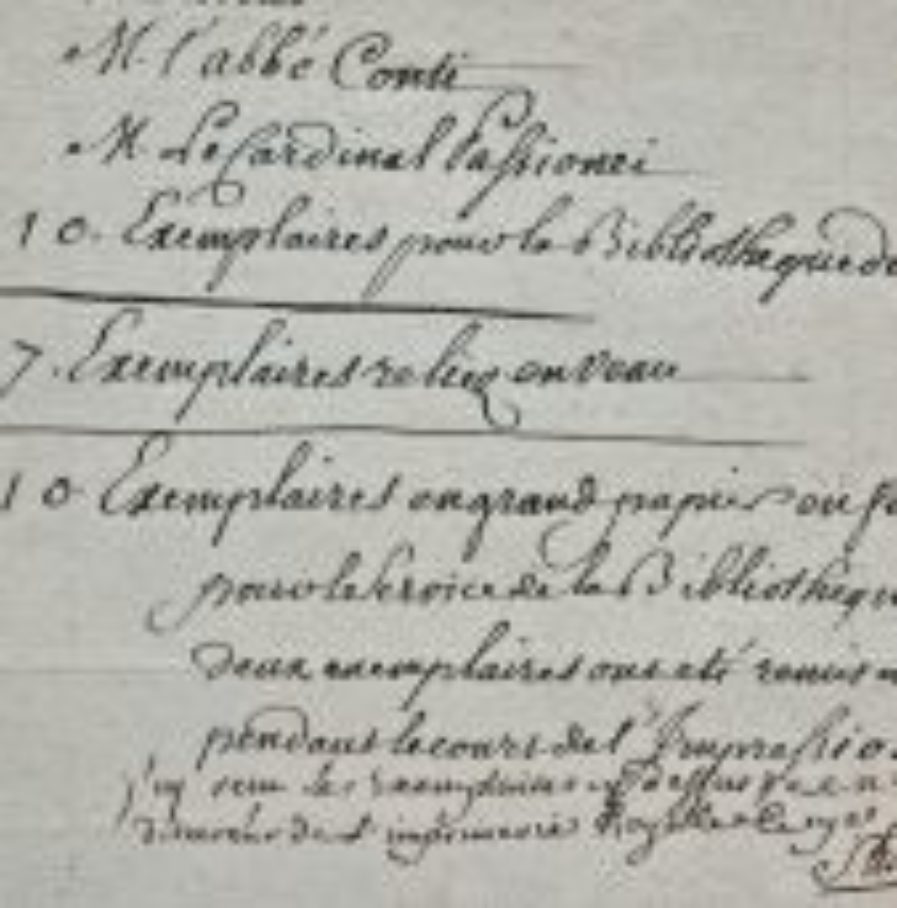 M. l'abbé Conti
M. Le Cardinal Passionei
10. Exemplaires pour la Bibliotheque de
7. Exemplaires reliez en veau
10 Exemplaires en grand papier en fe
pour le service de la Bibliothequ
deux exemplaires ont eté remis
pendant le cours de l'Impressio
j'ay receu les exemplaires cy dessus
directeur de l'imprimerie Royalle